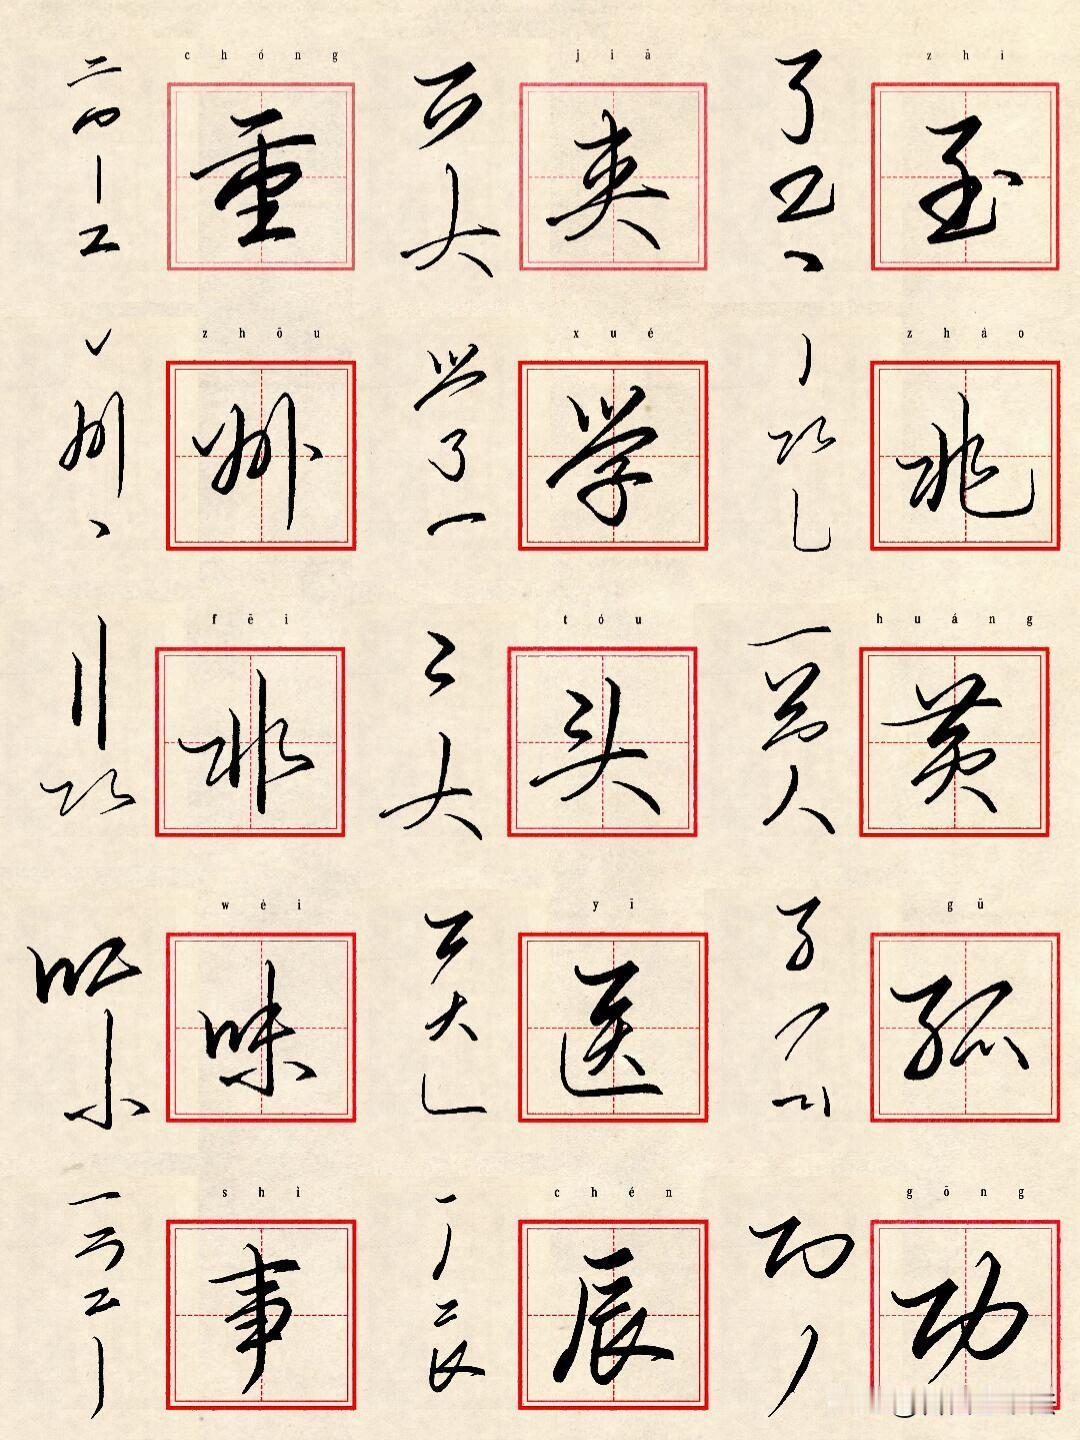 chóng jiā zhì
重 夹 至
zhōu xué zhào
州 学 兆
fēi tóu huáng
非 头 黄
wèi yī gū
味 医 孤
shì chén gōng
事 辰 功